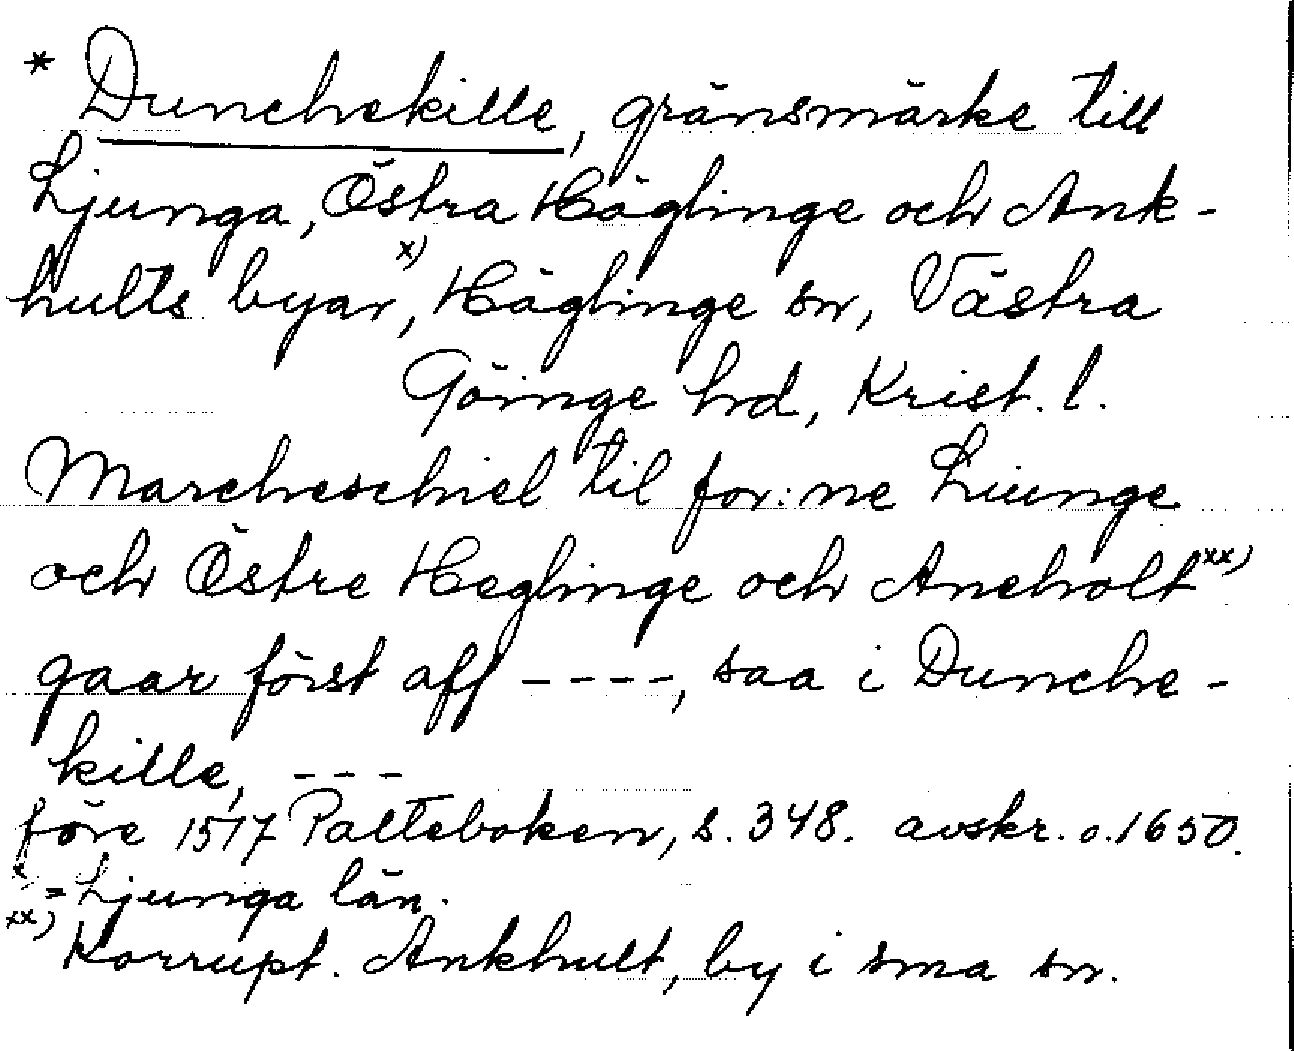 * Dunchekille, gränsmärke till
Ljunga, Östra Häglinge och Ank-
hults byar x), Häglinge sn, Västra
Göinge hd, Krist. l.
Marcheschiel til for:ne Liunge
och Östre Heglinge och Aneholt xx)
gaar först aff ----, saa i Dunche-
kille, ---
före 1517 Palteboken, s. 348. avskr. o. 1650.
x = Ljunga län.
xx) Korrupt. Ankhult, by i sma sn.